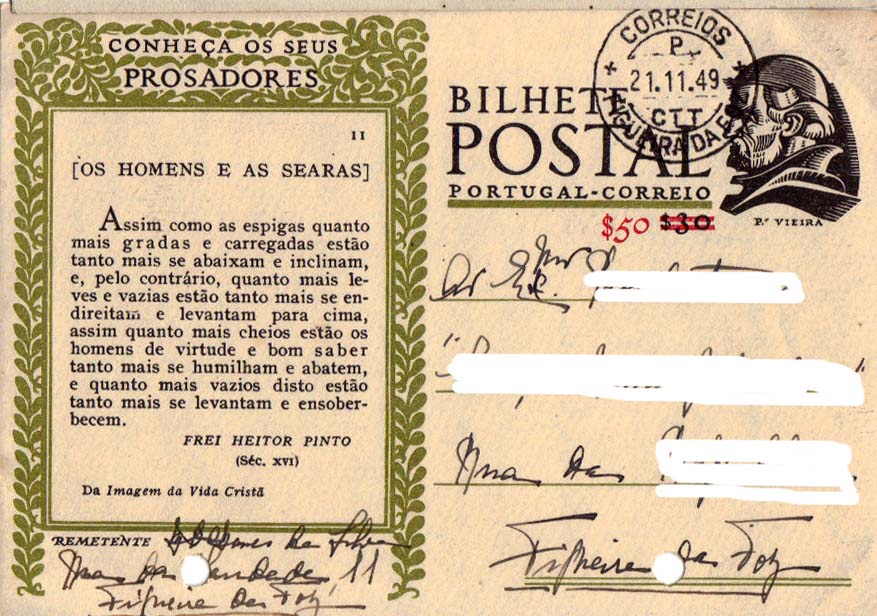 CONHEÇA OS SEUS
PROSADORES
11
[OS HOMENS E AS SEARAS]
Assim como as espigas quanto
mais gradas e carregadas estão
tanto mais se abaixam e inclinam,
e, pelo contrário, quanto mais le-
ves e vazias estão tanto mais se en-
direitam e levantam para cima,
assim quanto mais cheios estão os
homens de virtude e bom saber
tanto mais se humilham e abatem,
e quanto mais vazios disto estão
tanto mais se levantam e ensober-
becem.
FREI HEITOR PINTO
(Séc. XVI)
Da Imagem da Vida Cristã
REMETENTE da Silva
Rua da 11
Figueira da Foz
CORREIOS
P
21.11.49
CTT
FIGUEIRA DA FOZ
BILHETE
POSTAL
PORTUGAL-CORREIO
$50 $30
P.e VIEIRA
Rua das
Figueira da Foz